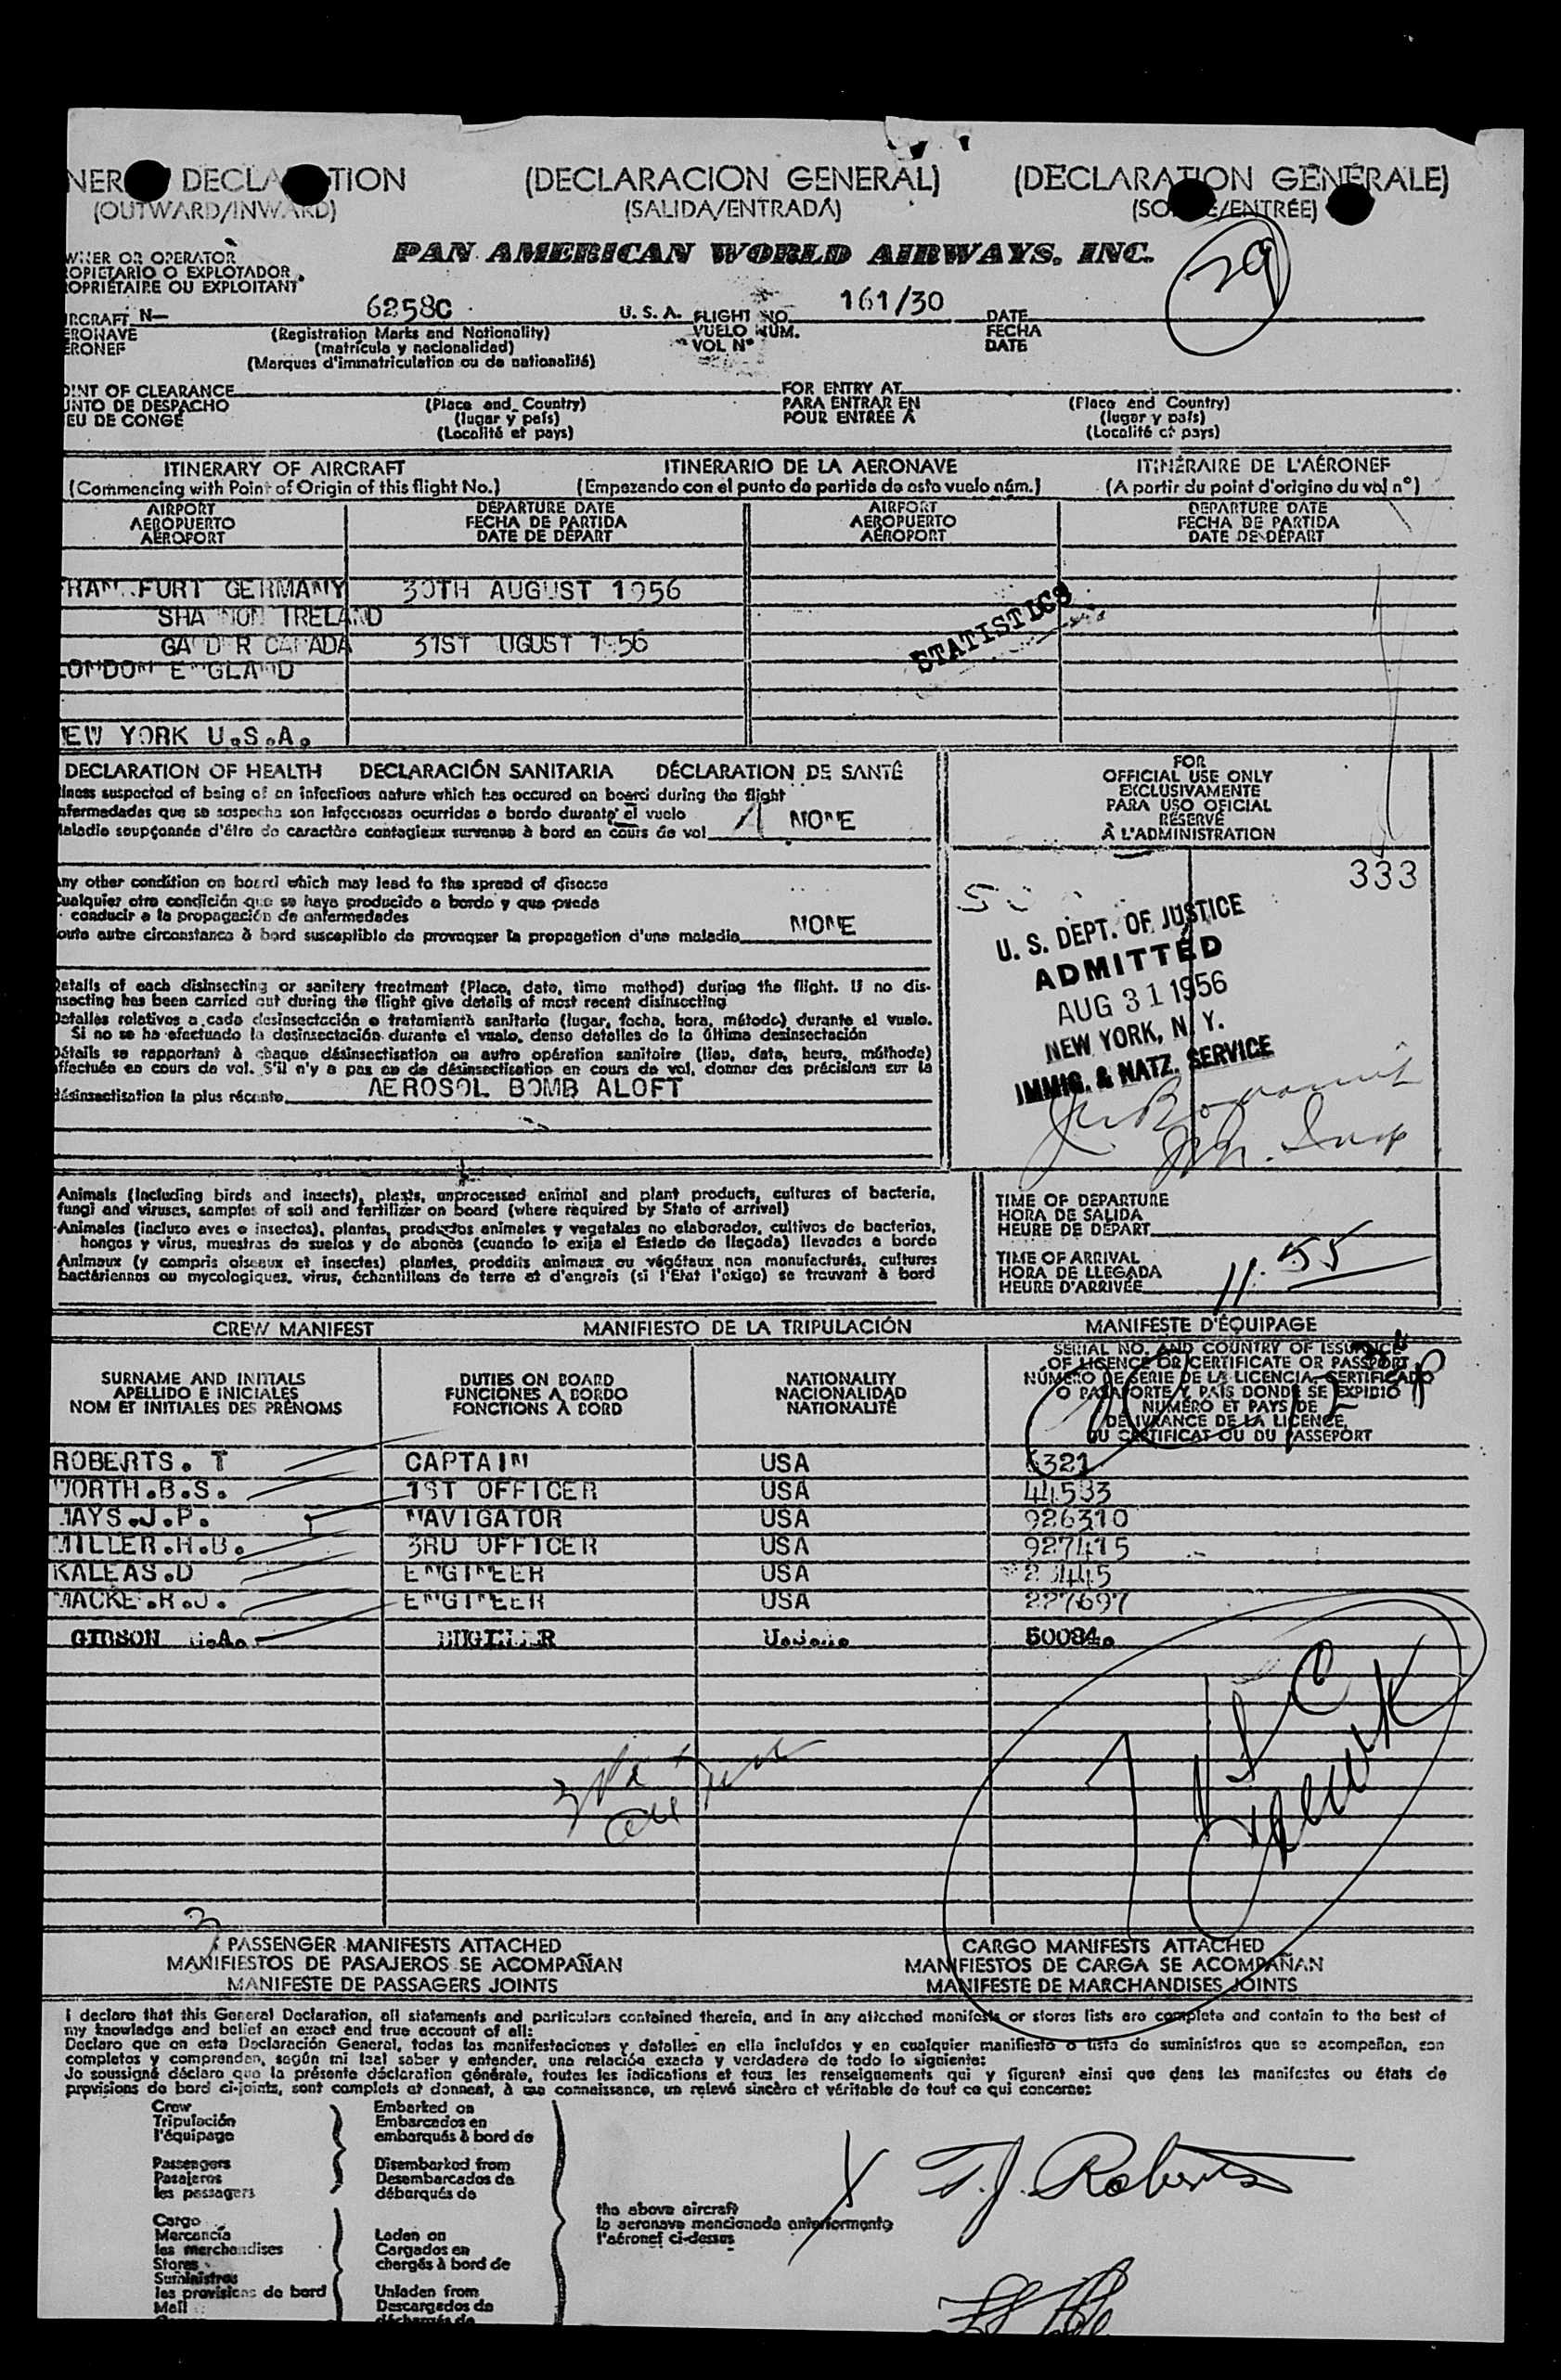 NER DECLA TION (DECLARACION GENERAL) (DECLARATION GÉNÉRALE)
(OUTWARD/INWARD) (SALIDA/ENTRADA) (SO E/ENTRÉE)
29
WNER OR OPERATOR
OPIETARIO O EXPLOTADOR
OPRIÉTAIRE OU EXPLOITANT
PAN AMERICAN WORLD AIRWAYS, INC.
IRCRAFT N— 6258C U. S. A. FLIGHT NO. 161/30 DATE
ERONAVE (Registration Marks and Nationality) VUELO NÚM. FECHA
ERONEF (matrícula y nacionalidad) VOL N° DATE
(Marques d'immatriculation ou de nationalité)
OINT OF CLEARANCE FOR ENTRY AT
UNTO DE DESPACHO (Place and Country) PARA ENTRAR EN (Place and Country)
EU DE CONGÉ (lugar y país) POUR ENTRÉE À (lugar y país)
(Localité et pays) (Localité et pays)
ITINERARY OF AIRCRAFT ITINERARIO DE LA AERONAVE ITINÉRAIRE DE L'AÉRONEF
(Commencing with Point of Origin of this flight No.) (Empezando con el punto de partida de este vuelo núm.) (A partir du point d'origine du vol n°)
AIRPORT DEPARTURE DATE AIRPORT DEPARTURE DATE
AEROPUERTO FECHA DE PARTIDA AEROPUERTO FECHA DE PARTIDA
AÉROPORT DATE DE DÉPART AÉROPORT DATE DE DÉPART
RAN FURT GERMANY 30TH AUGUST 1956
SHA NON IRELAND
GA D R CANADA 31ST UGUST 1956
LONDON ENGLAND
STATISTICS
EW YORK U.S.A.
DECLARATION OF HEALTH DECLARACIÓN SANITARIA DÉCLARATION DE SANTÉ
llness suspected of being of an infectious nature which has occured on board during the flight
nfermedades que se sospecha son infecciosas ocurridas a bordo durante el vuelo
aladie soupçonnée d'être de caractère contagieux survenue à bord en cours de vol NONE
FOR
OFFICIAL USE ONLY
EXCLUSIVAMENTE
PARA USO OFICIAL
RÉSERVÉ
À L'ADMINISTRATION
333
ny other condition on board which may lead to the spread of disease
ualquier otra condición que se haya producido a bordo y que pueda
conducir a la propagación de enfermedades
oute autre circonstance à bord susceptible de provoquer la propagation d'une maladie NONE
U. S. DEPT. OF JUSTICE
ADMITTED
AUG 31 1956
NEW YORK, N. Y.
IMMIG. & NATZ. SERVICE
etails of each disinsecting or sanitary treatment (Place, date, time method) during the flight. If no dis-
nsecting has been carried out during the flight give details of most recent disinsecting
Detalles relativos a cada desinsectación o tratamiento sanitario (lugar, fecha, hora, método) durante el vuelo.
Si no se ha efectuado la desinsectación durante el vuelo, dense detalles de la última desinsectación
Détails se rapportant à chaque désinsectisation ou autre opération sanitaire (lieu, date, heure, méthode)
ffectuée en cours de vol. S'il n'y a pas eu de désinsectisation en cours de vol, donner des précisions sur la
désinsectisation la plus récente AEROSOL BOMB ALOFT
Animals (including birds and insects), plants, unprocessed animal and plant products, cultures of bacteria,
fungi and viruses, samples of soil and fertilizer on board (where required by State of arrival)
Animales (incluso aves e insectos), plantas, productos animales y vegetales no elaborados, cultivos de bacterias,
hongos y virus, muestras de suelos y de abonos (cuando lo exija el Estado de llegada) llevados a bordo
Animaux (y compris oiseaux et insectes) plantes, produits animaux ou végétaux non manufacturés, cultures
bactériennes ou mycologiques, virus, échantillons de terre et d'engrais (si l'Etat l'exige) se trouvant à bord
TIME OF DEPARTURE
HORA DE SALIDA
HEURE DE DÉPART
TIME OF ARRIVAL
HORA DE LLEGADA
HEURE D'ARRIVÉE 11.55
CREW MANIFEST MANIFIESTO DE LA TRIPULACIÓN MANIFESTE D'ÉQUIPAGE
SURNAME AND INITIALS
APELLIDO E INICIALES
NOM ET INITIALES DES PRÉNOMS
DUTIES ON BOARD
FUNCIONES A BORDO
FONCTIONS À BORD
NATIONALITY
NACIONALIDAD
NATIONALITÉ
SERIAL NO. AND COUNTRY OF ISSUANCE
OF LICENCE OR CERTIFICATE OR PASSPORT
NÚMERO DE SERIE DE LA LICENCIA, CERTIFICADO
O PASAPORTE Y PAÍS DONDE SE EXPIDIÓ
NUMÉRO ET PAYS DE
DÉLIVRANCE DE LA LICENCE,
DU CERTIFICAT OU DU PASSEPORT
ROBERTS. T CAPTAIN USA 6321
WORTH.B.S. 1ST OFFICER USA 44583
MAYS.J.P. NAVIGATOR USA 926310
MILLER.H.B. 3RD OFFICER USA 927415
KALEAS.D ENGINEER USA
MACKE.R.J. ENGINEER USA 227697
GIBSON .A. 50084.
3
PASSENGER MANIFESTS ATTACHED CARGO MANIFESTS ATTACHED
MANIFIESTOS DE PASAJEROS SE ACOMPAÑAN MANIFIESTOS DE CARGA SE ACOMPAÑAN
MANIFESTE DE PASSAGERS JOINTS MANIFESTE DE MARCHANDISES JOINTS
I declare that this General Declaration, all statements and particulars contained therein, and in any attached manifests or stores lists are complete and contain to the best of
my knowledge and belief an exact end true account of all:
Declaro que en esta Declaración General, todas las manifestaciones y detalles en ella incluídos y en cualquier manifiesto o lista de suministros que se acompañan, son
completos y comprenden, según mi leal saber y entender, una relación exacta y verdadera de todo lo siguiente:
Je soussigné déclare que la présente déclaration générale, toutes les indications et tous les renseignements qui y figurent ainsi que dans les manifestes ou états de
provisions de bord ci-joints, sont complets et donnent, à ma connaissance, un relevé sincère et véritable de tout ce qui concerne:
Crew Embarked on
Tripulación Embarcados en
l'équipage embarqués à bord de
Passengers Disembarked from
Pasajeros Desembarcados de
les passagers débarqués de
X T.J. Roberts
the above aircraft
la aeronave mencionada anteriormente
l'aéronef ci-dessus
Cargo
Mercancía Laden on
les marchandises Cargados en
Stores chargés à bord de
Suministros
les provisions de bord Unladen from
Mail Descargados de
déchargés de